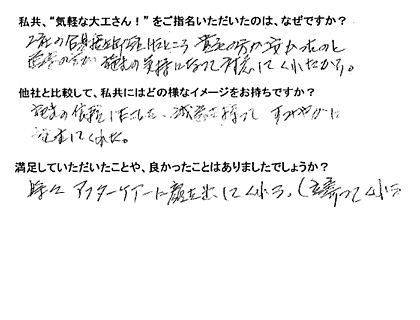 私共、“気軽な大工さん！” をご指名いただいたのは、なぜですか？
2社の 見積を ところ 貴社の方が安かったのと
営業の方が 施主の気持になって対応してくれたから。
他社と比較して、私共にはどの様なイメージをお持ちですか？
施主の依頼に対しても、誠意を持って すみやかに
してくれた。
満足していただいたことや、良かったことはありましたでしょうか？
時々 アフターケアーに顔を出してくれる。（立寄ってくれる